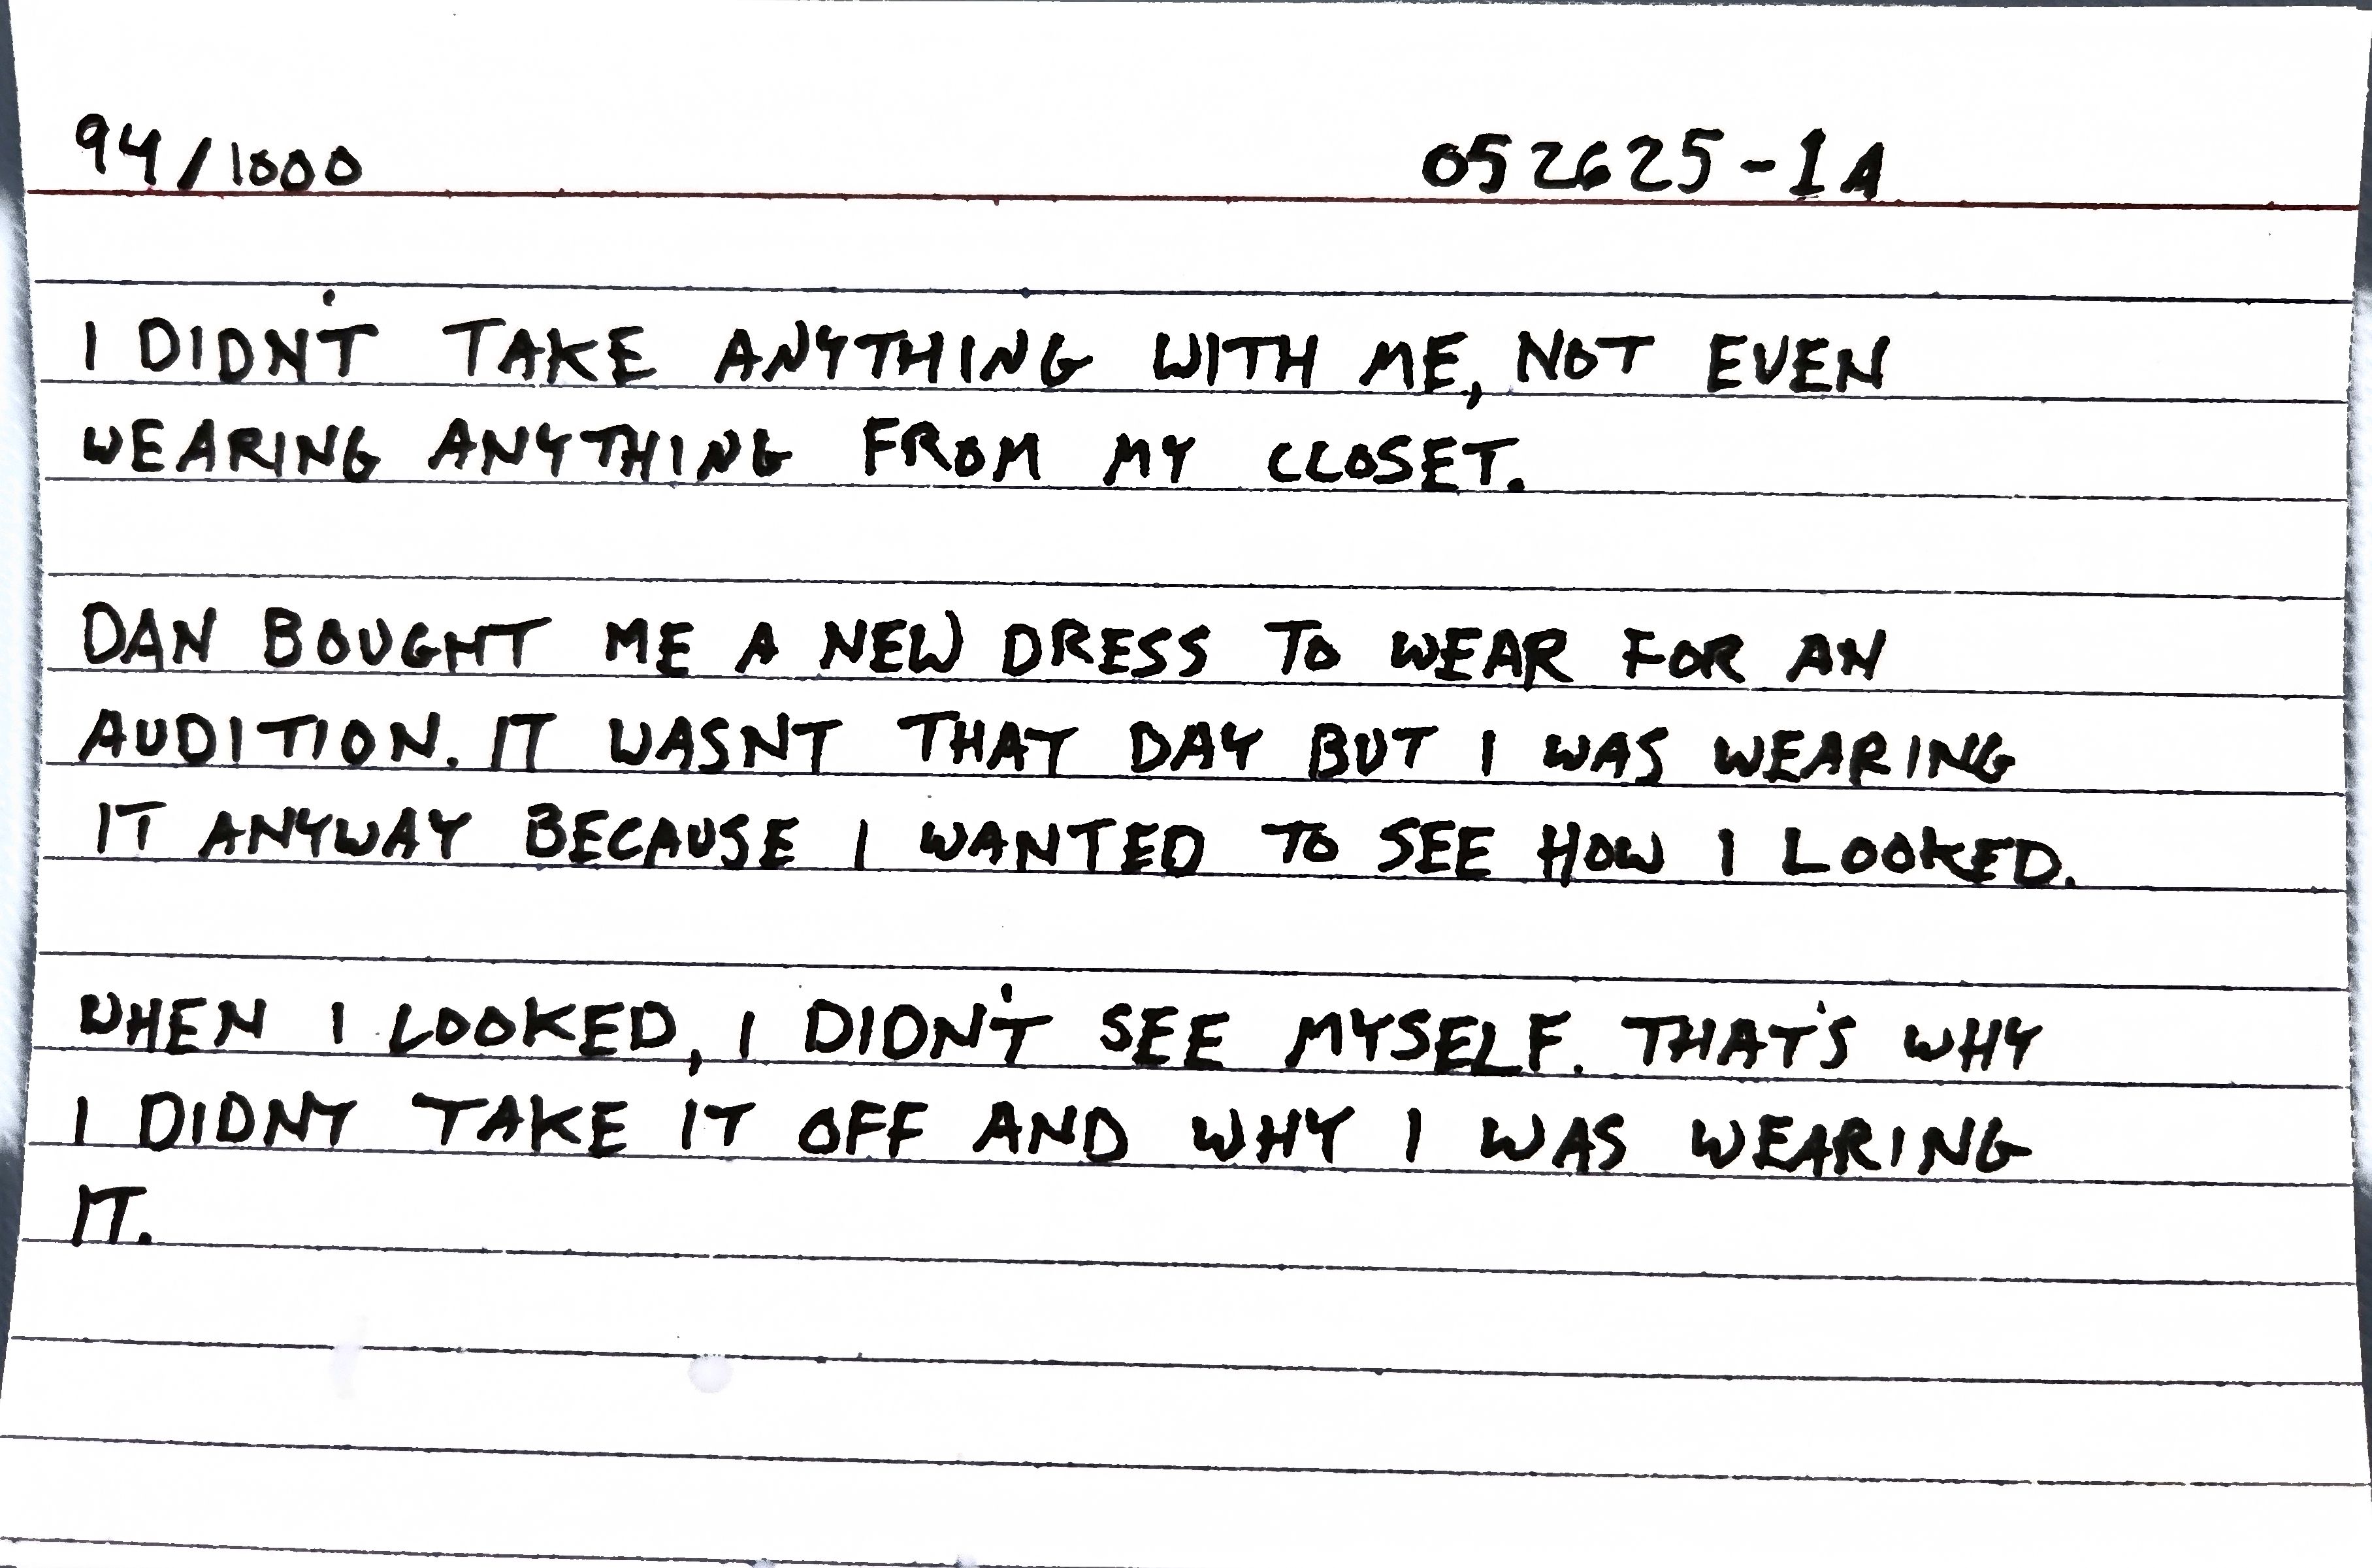 94/1000 052625-1A
I DIDN'T TAKE ANYTHING WITH ME, NOT EVEN
WEARING ANYTHING FROM MY CLOSET.
DAN BOUGHT ME A NEW DRESS TO WEAR FOR AN
AUDITION. IT WASNT THAT DAY BUT I WAS WEARING
IT ANYWAY BECAUSE I WANTED TO SEE HOW I LOOKED.
WHEN I LOOKED, I DIDN'T SEE MYSELF. THAT'S WHY
I DIDNT TAKE IT OFF AND WHY I WAS WEARING
IT.